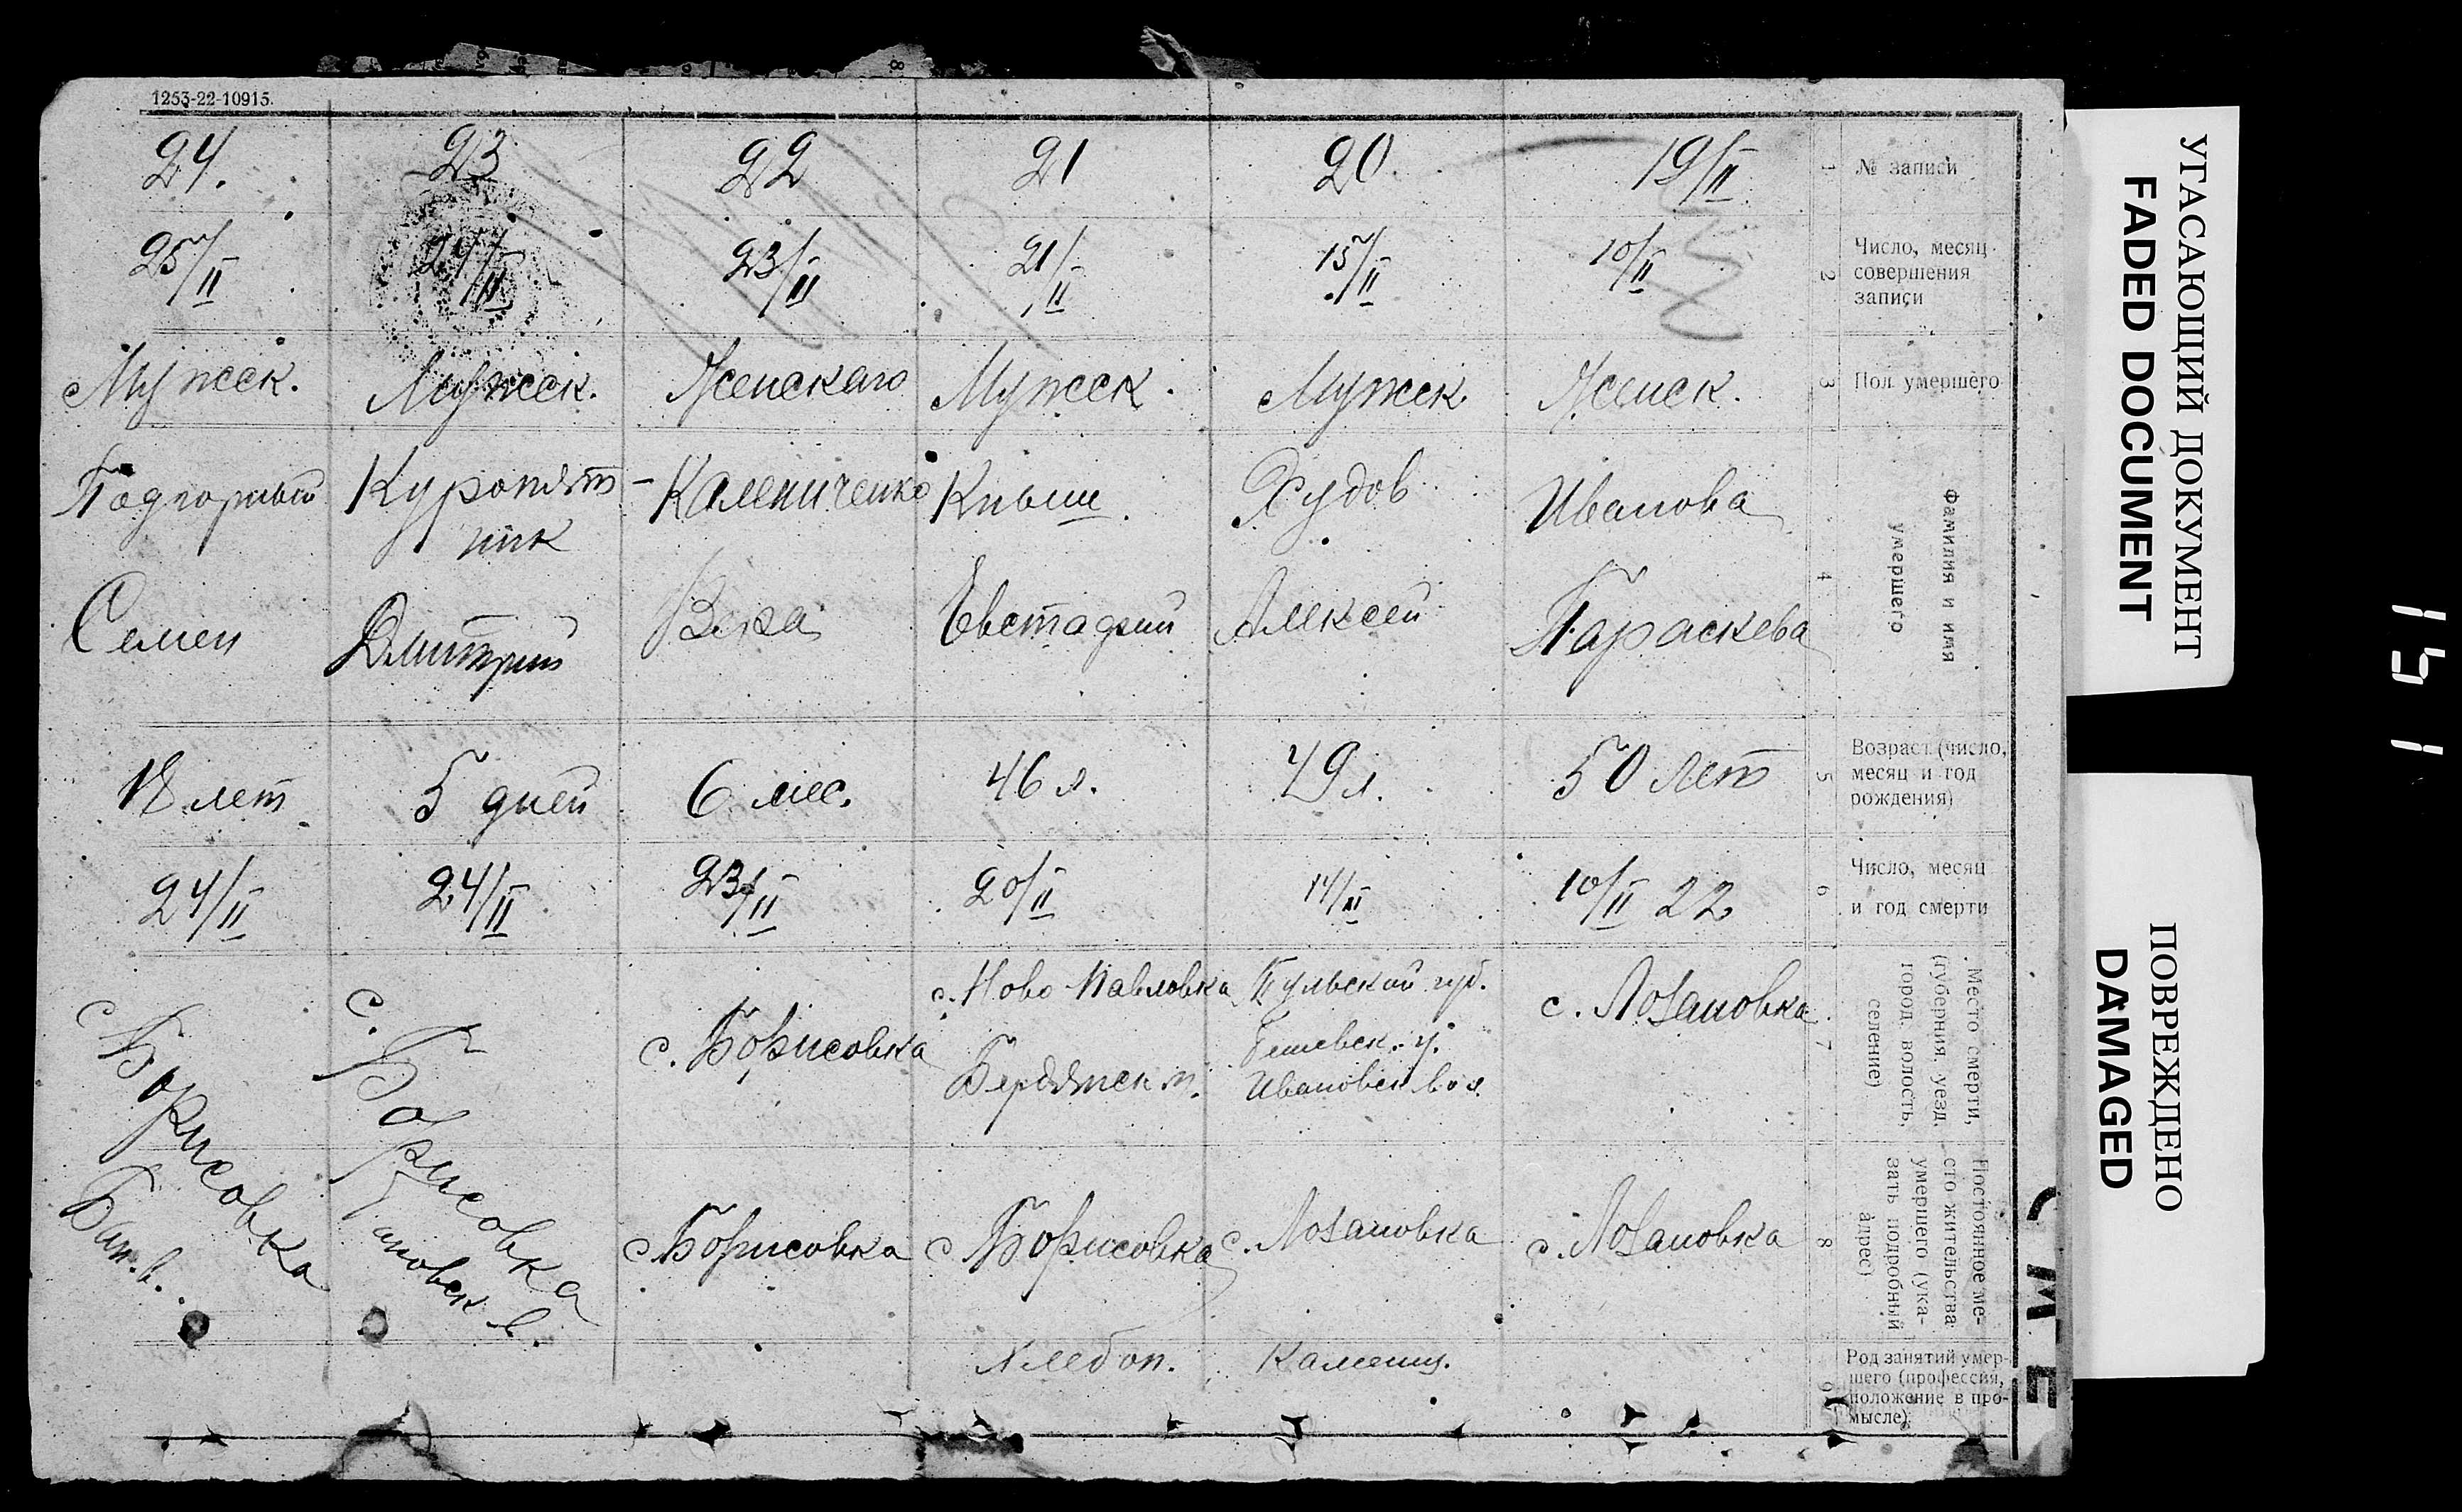 1253-22-10915.
24. 23 22 21 20 19/II № записи 1
25/II 24/II 23/II 21/II 15/II 10/II Число, месяц совершения записи 2
Мужеск. Мужеск. Женскаго Мужеск. Мужеск. Женск. Пол умершего 3
Подгорный Куропят- Калениченко Кныш Худов Иванова Фамилия и имя
ник
умершего 4
Семен Дмитрий Вера Евстафий Алексей Параскева
18 лет 5 дней 6 мес. 46 л. 49 л. 50 лет Возраст (число, месяц и год рождения) 5
24/II 24/II 23/II 20/II 14/II 10/II 22 Число, месяц и год смерти 6
с Борисовка с. Борисовка с. Борисовка с. Ново-Павловка Тульской губ. с. Лозановка Место смерти, (губерния, уезд, город, волость, селение) 7
Бердянск
Ивановск вол.
Бан. в. с. Борисовка с. Борисовка с. Лозановка с. Лозановка Постоянное место жительства умершего (указать подробный адрес) 8
Хлебоп. Каменщ. Род занятий умершего (профессия, положение в промысле) 9
УГАСАЮЩИЙ ДОКУМЕНТ
FADED DOCUMENT
ПОВРЕЖДЕНО
DAMAGED
151